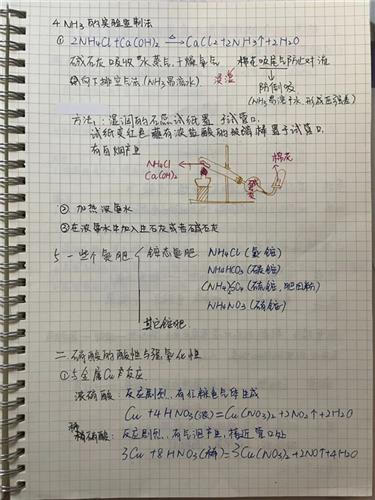 4 NH₃的实验室制法
① 2NH₄Cl+Ca(OH)₂ △ CaCl₂+2NH₃↑+2H₂O
碱石灰吸收水蒸气,干燥氨气 棉花吸尾气防止对流
向下排空气法(NH₃易溶水) 浸湿
防倒吸
(NH₃易溶于水,形成压强差)
方法:湿润的石蕊试纸置于试管口
试纸变红色 蘸有浓盐酸的玻璃棒置于试管口
有白烟产生
NH₄Cl
Ca(OH)₂
棉花
② 加热浓氨水
③在浓氨水中加入生石灰或者碱石灰
5 一些个氮肥
铵态氮肥
NH₄Cl(氯铵)
NH₄HCO₃(碳铵)
(NH₄)₂SO₄(硫铵,肥田粉)
NH₄NO₃(硝铵)
其它铵肥
二 硝酸的酸性与强氧化性
①与金属Cu反应
浓硝酸:反应剧烈,有红棕色气体生成
Cu+4HNO₃(浓)=Cu(NO₃)₂+2NO₂↑+2H₂O
稀
稀硝酸:反应剧烈,有气泡产生,接近管口处
3Cu+8HNO₃(稀)=3Cu(NO₃)₂+2NO↑+4H₂O